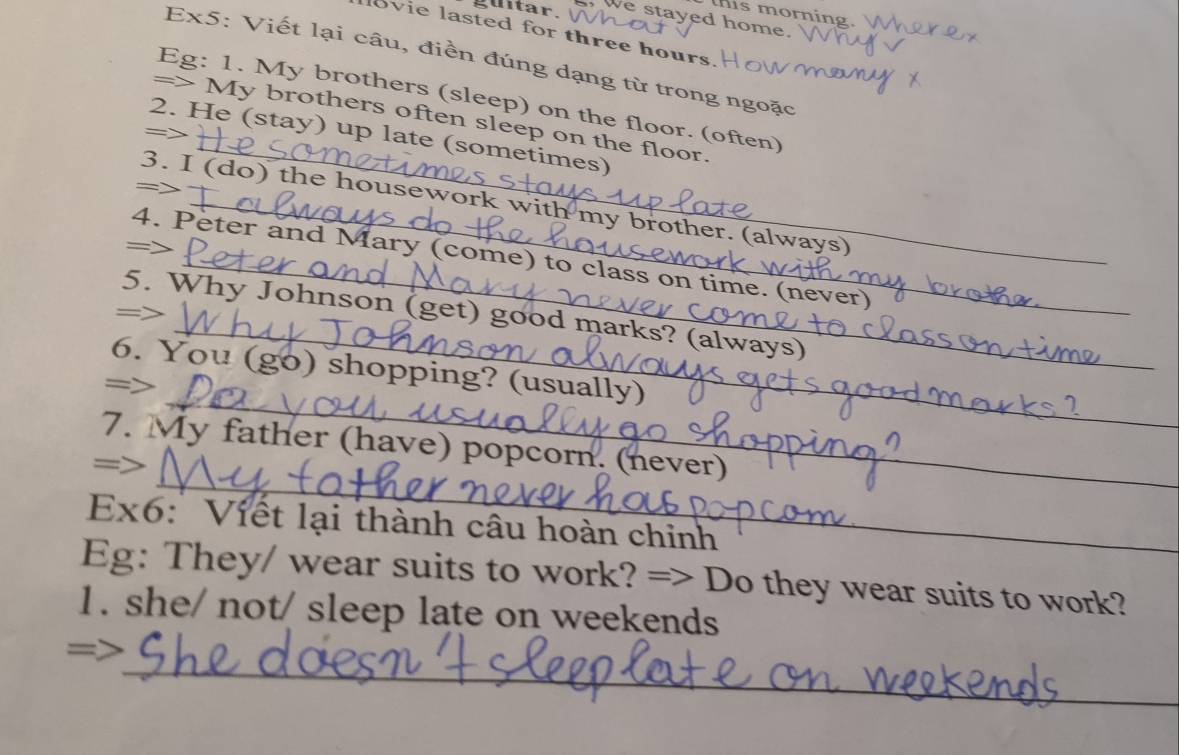 this morning. Where x
we stayed home. Why ✓
guitar. What ✓
movie lasted for three hours. How many x
Ex5: Viết lại câu, điền đúng dạng từ trong ngoặc
Eg: 1. My brothers (sleep) on the floor. (often)
=> My brothers often sleep on the floor.
2. He (stay) up late (sometimes)
=> He sometimes stays up late
3. I (do) the housework with my brother. (always)
=> I always do the housework with my brother.
4. Peter and Mary (come) to class on time. (never)
=> Peter and Mary never come to class on time
5. Why Johnson (get) good marks? (always)
=> Why Johnson always gets good marks?
6. You (go) shopping? (usually)
=> Do you usually go shopping?
7. My father (have) popcorn. (never)
=> My father never has popcorn.
Ex6: Viết lại thành câu hoàn chỉnh
Eg: They/ wear suits to work? => Do they wear suits to work?
1. she/ not/ sleep late on weekends
=> She doesn't sleep late on weekends